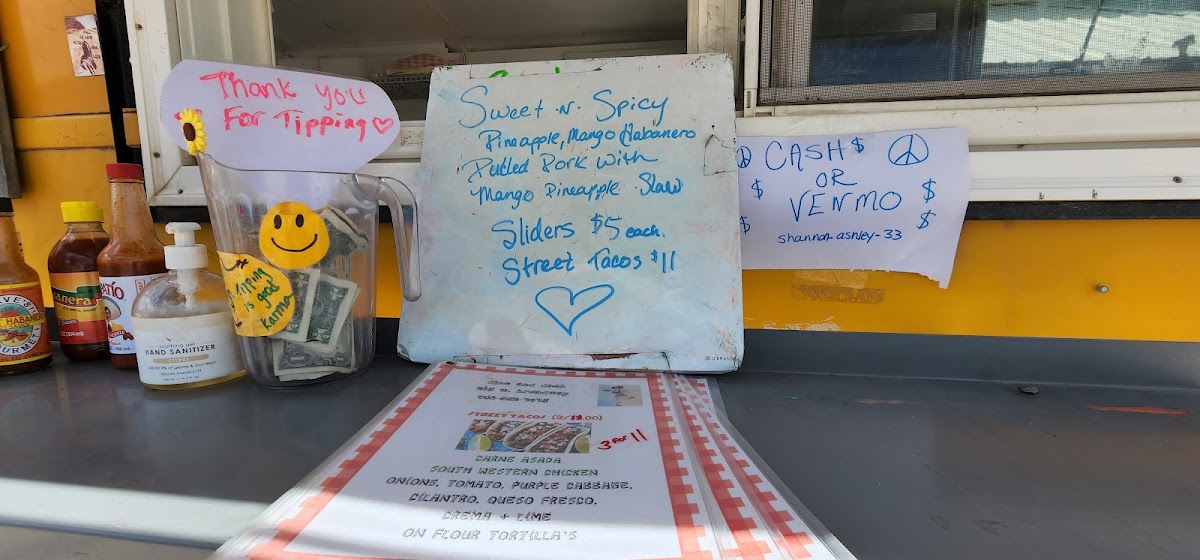 Thank you
For Tipping
Tipping
is good
karma
HAND SANITIZER
Sweet N. Spicy
Pineapple, Mango Habanero
Pulled Pork with
Mango Pineapple Slaw
Sliders $5 each.
Street Tacos $11
$ CASH $
OR
$ VENMO $
$ $
shannon-ashley-33
STREET TACOS (3/
3 For 11
CARNE ASADA
SOUTH WESTERN CHICKEN
ONIONS, TOMATO, PURPLE CABBAGE,
CILANTRO, QUESO FRESCO.
CREMA + LIME
ON FLOUR TORTILLA'S